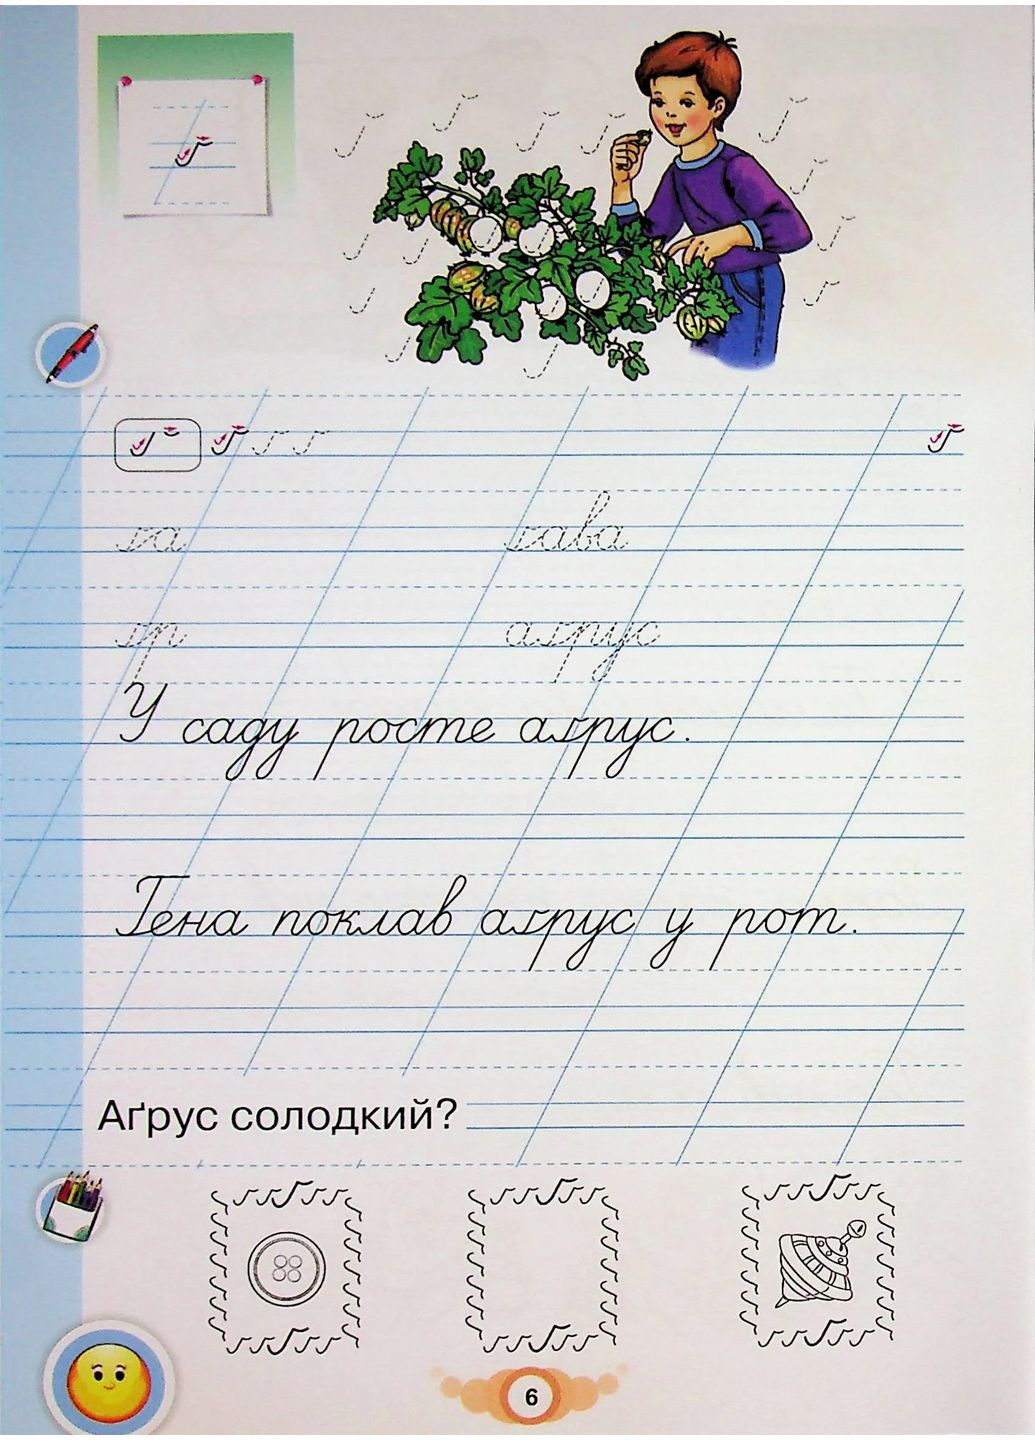 ґ
ґ ґ ґ ґ ґ
ґа ґава
ґр аґрус
У саду росте аґрус.
Гена поклав аґрус у рот.
Аґрус солодкий?
6